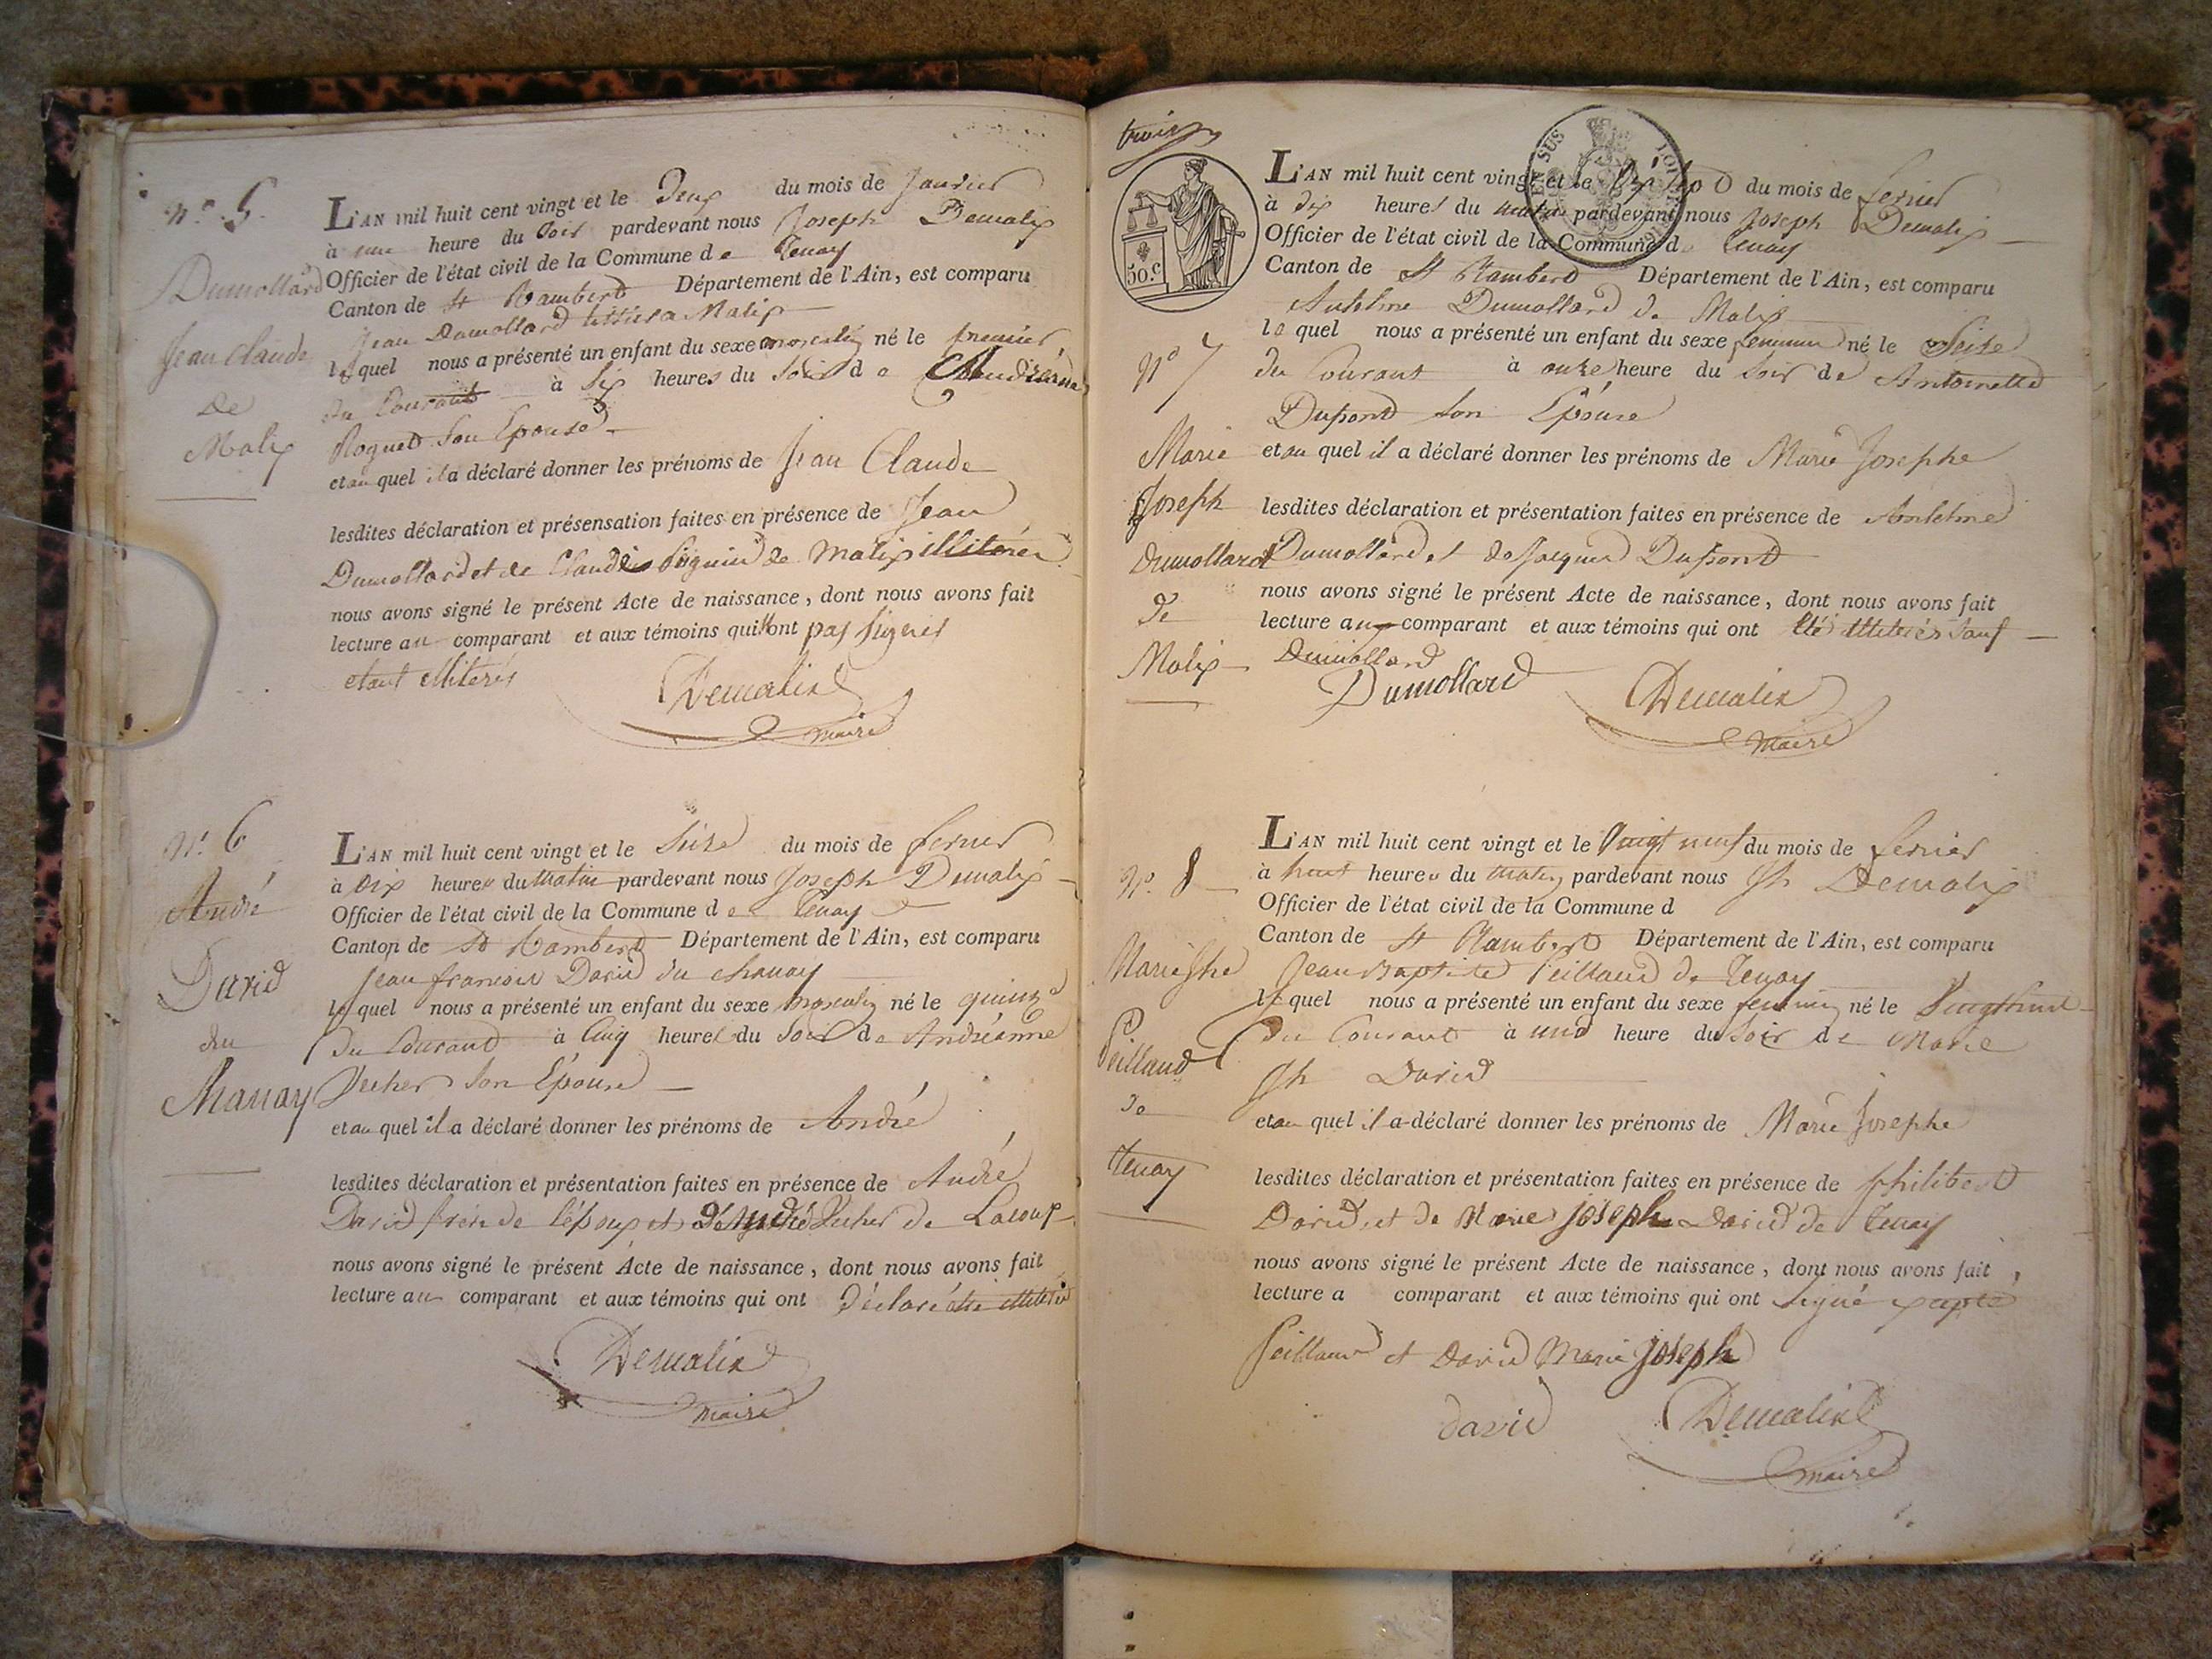 N° 5
Dumollard
Jean Claude
De
Malix
L'AN mil huit cent vingt et le Deux du mois de Janvier
à une heure du Soir pardevant nous Joseph Demalix
Officier de l'état civil de la Commune de Tenay
Canton de St Rambert Département de l'Ain, est comparu
Jean Dumollard a Malix
lequel nous a présenté un enfant du sexe masculin né le premier
du Courant à Six heures du Soir de
Roguet Son Epouse
et au quel il a déclaré donner les prénoms de Jean Claude
lesdites déclaration et présensation faites en présence de Jean
Dumollard et de Claude de Malix illiterés
nous avons signé le présent Acte de naissance, dont nous avons fait
lecture au comparant et aux témoins qui n'ont pas signés
etant illiterés
Demalix
maire
N° 6
André
David
du
Chanay
L'AN mil huit cent vingt et le Seize du mois de fevrier
à Dix heures du Matin pardevant nous Joseph Demalix
Officier de l'état civil de la Commune de Tenay
Canton de St Rambert Département de l'Ain, est comparu
Jean francois David du chanay
lequel nous a présenté un enfant du sexe masculin né le quinze
du Courant à Cinq heures du Soir de Andréanne
Vucher Son Epouse
et au quel il a déclaré donner les prénoms de André
lesdites déclaration et présentation faites en présence de André
David frère de l'époux et de André Vucher de Lacoux
nous avons signé le présent Acte de naissance, dont nous avons fait
lecture au comparant et aux témoins qui ont déclaré être illiterés
Demalix
maire
trois
50.c
N° 7
Marie
Joseph
Dumollard
de
Malix
L'AN mil huit cent vingt et le Dix Sept du mois de fevrier
à dix heures du matin pardevant nous Joseph Demalix
Officier de l'état civil de la Commune de Tenay
Canton de St Rambert Département de l'Ain, est comparu
Anthelme Dumollard de Malix
lequel nous a présenté un enfant du sexe feminin né le Seize
du Courant à onze heure du Soir de Antoinette
Dupont Son Epouse
et au quel il a déclaré donner les prénoms de Marie Josephe
lesdites déclaration et présentation faites en présence de Anthelme
Dumollard et de Jacques Dupont
nous avons signé le présent Acte de naissance, dont nous avons fait
lecture aux comparant et aux témoins qui ont été illiterés Sauf
Dumollard
Dumollard
Demalix
maire
N° 8
Marie Jhe
Peilland
de
Tenay
L'AN mil huit cent vingt et le Vingt neuf du mois de fevrier
à huit heures du matin pardevant nous Jh Demalix
Officier de l'état civil de la Commune d
Canton de St Rambert Département de l'Ain, est comparu
Jean Baptiste Peilland de Tenay
lequel nous a présenté un enfant du sexe feminin né le Vingt huit
du Courant à une heure du Soir de Marie
Jh David
et au quel il a déclaré donner les prénoms de Marie Josephe
lesdites déclaration et présentation faites en présence de philibert
David, et de Marie Joseph David de Tenay
nous avons signé le présent Acte de naissance, dont nous avons fait
lecture a comparant et aux témoins qui ont signé
Peilland et David Marie Joseph
david
Demalix
maire